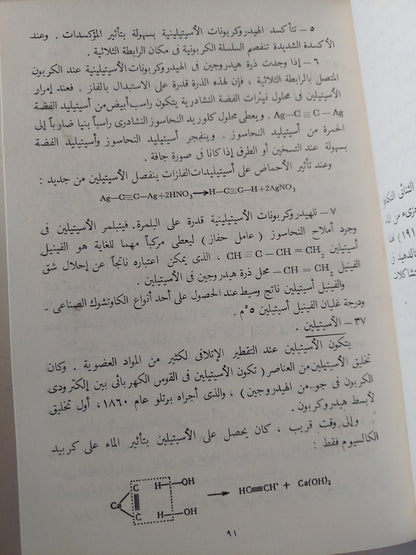 ٥ – تتأكسد الهيدروكربونات الأسيتيلينية بسهولة بتأثير المؤكسدات . وعند
الأكسدة الشديدة تنفصم السلسلة الكربونية فى مكان الرابطة الثلاثية .
٦ – إذا وجدت ذرة هيدروجين فى الهيدروكربونات الأسيتيلينية عند الكربون
المتصل بالرابطة الثلاثية ، فإن لهذه الذرة قدرة على الاستبدال بالفلز . فعند إمرار
الأسيتيلين فى محلول نيترات الفضة النشادرية يتكون راسب أبيض من أسيتيليد الفضة
Ag—C≡C—Ag . ويعطى محلول كلوريد النحاسوز النشادرى راسباً بنيا ضارباً إلى
الحمرة من أسيتيليد النحاسوز . وينفجر أسيتيليد النحاسوز وأسيتيليد الفضة
بسهولة عند التسخين أو الطرق إذا كانا فى صورة جافة .
وعند تأثير الأحماض على أسيتيليدات الفلزات ينفصل الأسيتيلين من جديد :
Ag—C≡C—Ag+2HNO₃⟶H—C≡C—H+2AgNO₃
٧ – للهيدروكربونات الأسيتيلينية قدرة على البلمرة . فيتبلمر الأسيتيلين فى
وجود أملاح النحاسوز ( عامل حفاز ) ليعطى مركباً مهما للغاية هو الفينيل
أسيتيلين CH ≡ C — CH = CH₂ ، الذى يمكن اعتباره ناتجاً عن إحلال شق
الفينيل CH₂ = CH — محل ذرة هيدروجين فى الأسيتيلين .
والفينيل أسيتيلين ناتج وسيط عند الحصول على أحد أنواع الكاوتشوك الصناعى .
ودرجة غليان الفينيل أسيتيلين ٥°م .
٣٧ – الأسيتيلين .
يتكون الأسيتيلين عند التقطير الإتلافى لكثير من المواد العضوية . وكان
تخليق الأسيتيلين من العناصر ( تكون الأسيتيلين فى القوس الكهربائى بين إلكترودى
الكربون فى جو من الهيدروجين ) ، والذى أجراه برتلو عام ١٨٦٠ ، أول تخليق
لأبسط هيدروكربون .
وإلى وقت قريب ، كان يحصل على الأسيتيلين بتأثير الماء على كربيد
الكالسيوم فقط :
Ca C C H—OH H—OH ⟶ HC≡CH + Ca(OH)₂
٩١